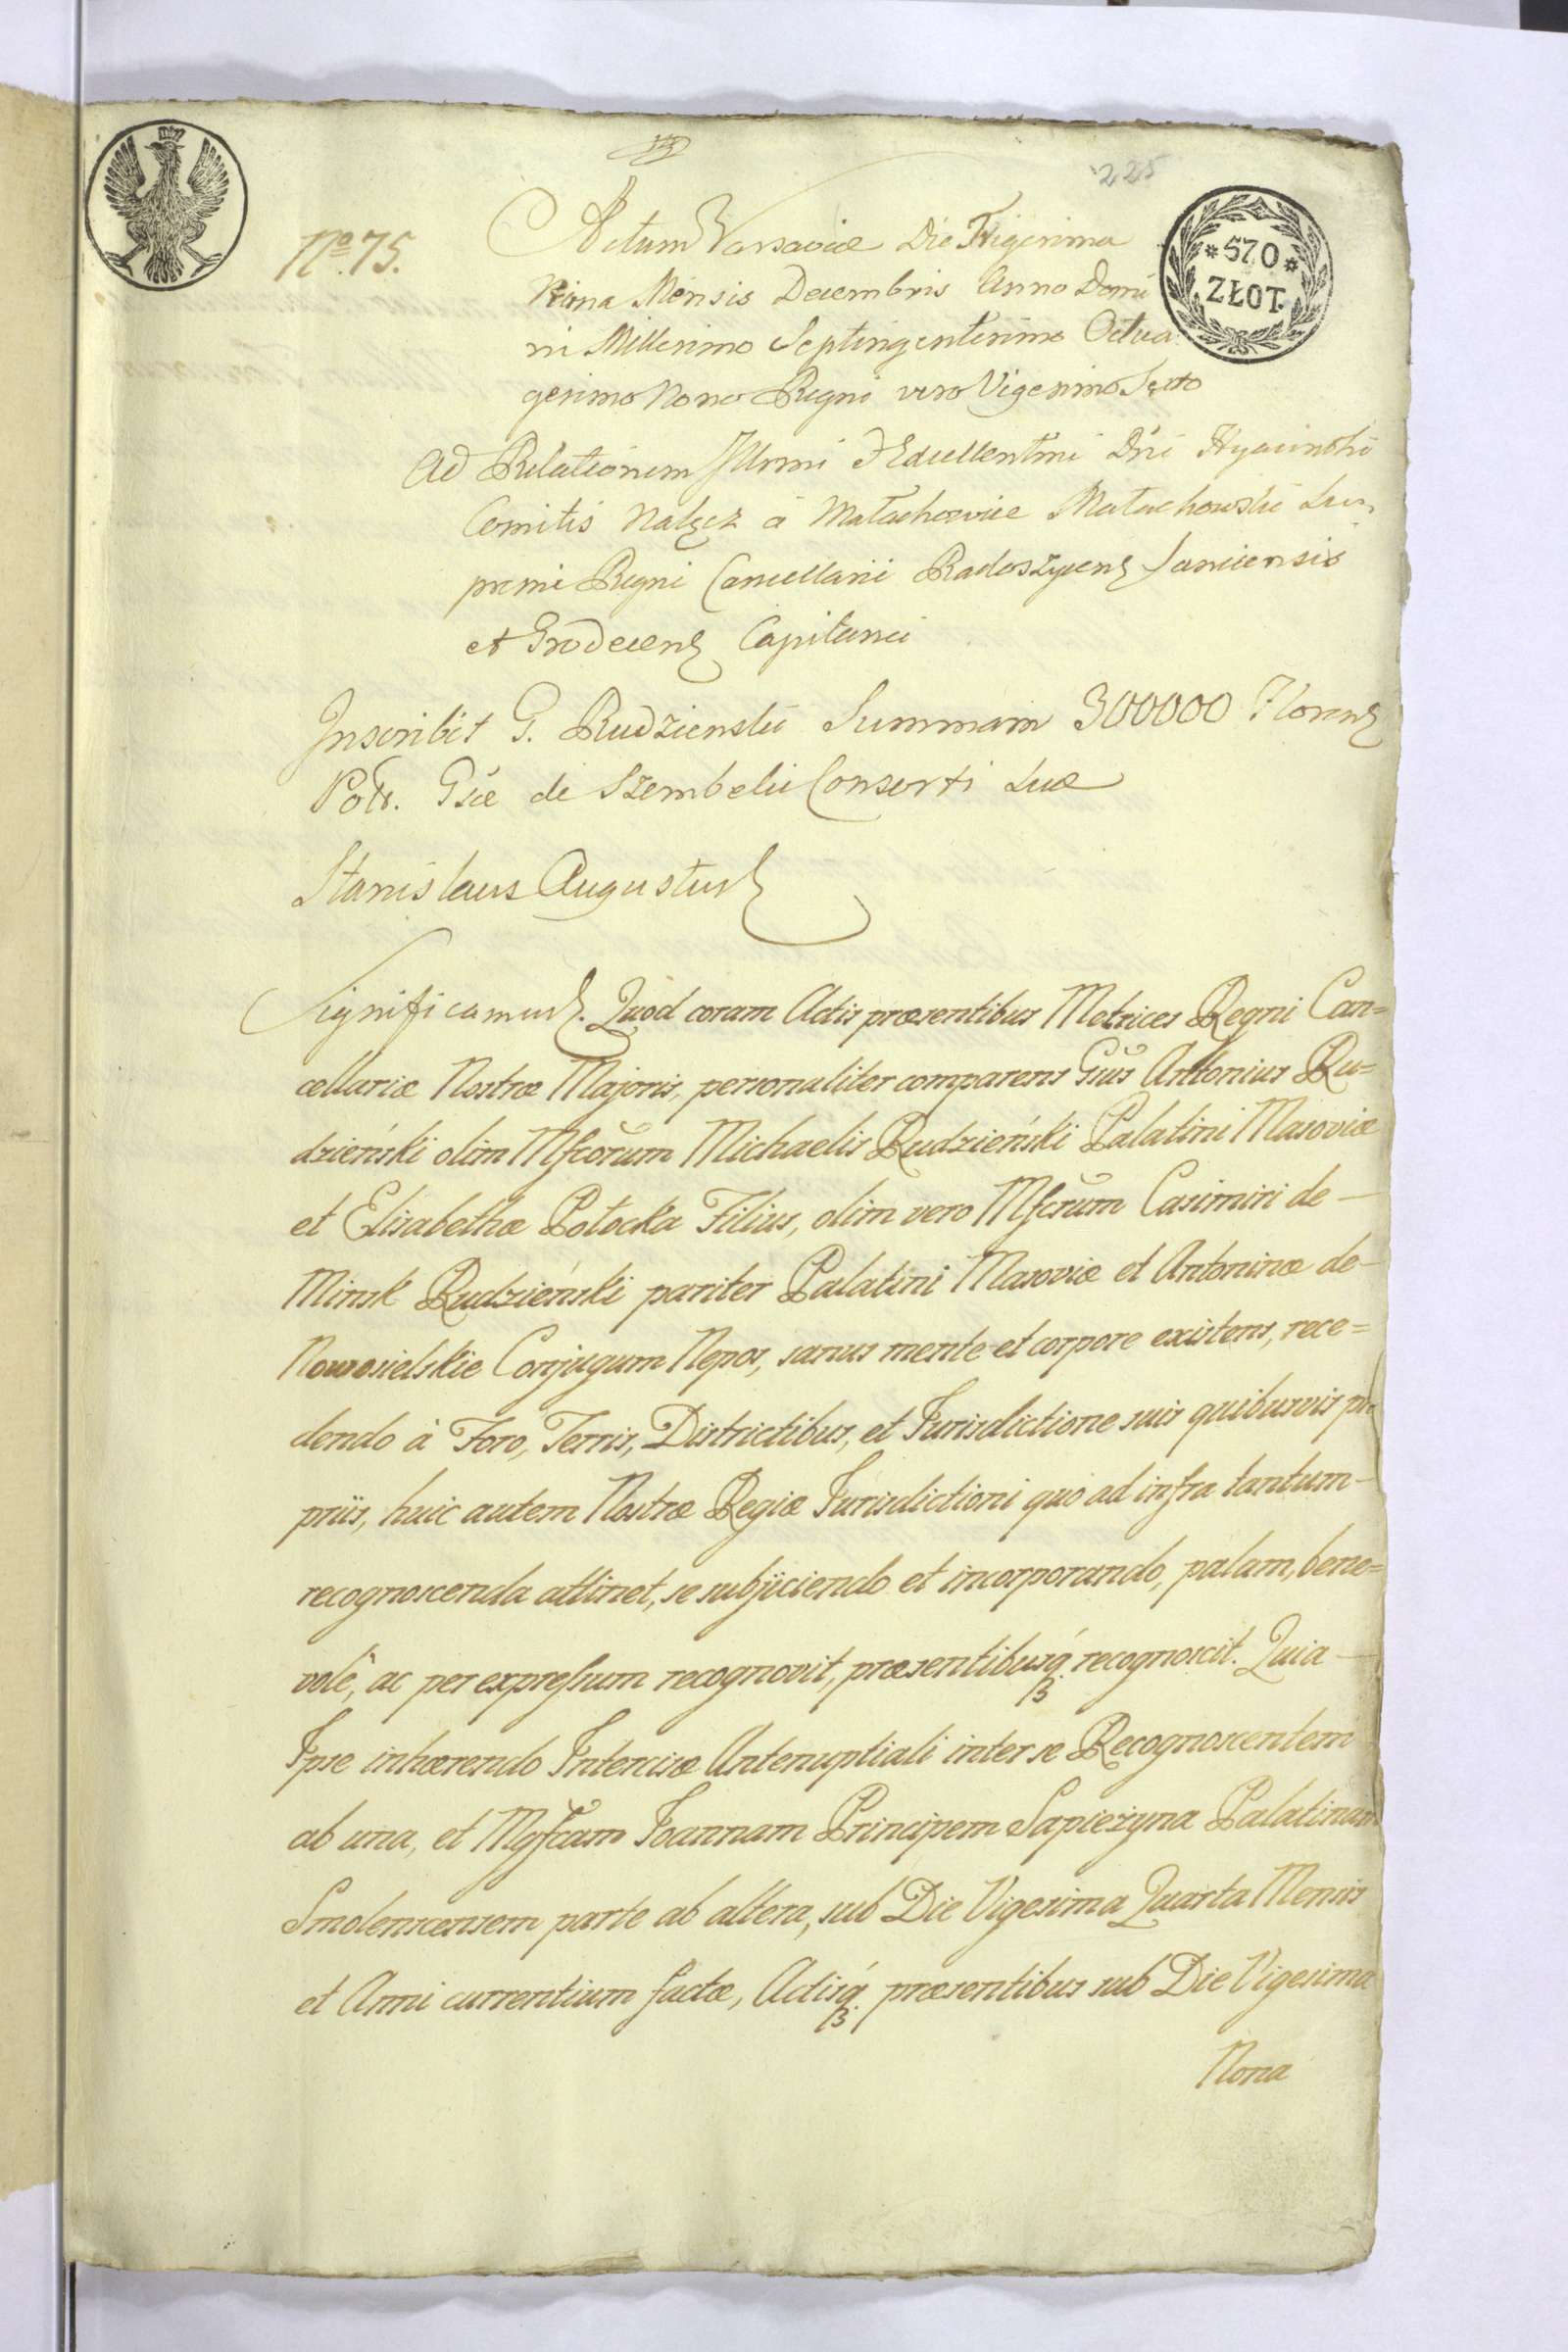 225
*570*
ZŁOT.
No. 75.
Actum Varsaviæ Die Trigesima
Prima Mensis Decembris Anno Domi
ni Millesimo Septingentesimo Octua
gesimo Nono Regni vero Vigesimo Sexto
Ad Relationem Illrmi Excellentmi Dni Hyacinthi
Comitis Nałęcz a Małachowice Małachowski Su
premi Regni Cancellarii Radoszycens
et Grodecens Capitanei
Inscribit G. Rudzienski Summam 300000 Florens
Pol. Gsæ de Szembeki Consorti Suæ
Stanislaus Augustus
Significamus. Quod coram Actis præsentibus Metrices Regni Can=
cellariæ Nostræ Majoris, personaliter comparens Gsus Antonius Ru=
dzieński olim Mfcorum Michaelis Rudzieński Palatini Masoviæ
et Elisabethæ Potocka Filius, olim vero Mfcrum Casimiri de —
Minsk Rudzieński pariter Palatini Masoviæ et Antoninæ de —
Nowosielskie Conjugum Nepos, sanus mente et corpore existens, rece=
dendo à Foro, Terris, Districtibus, et Jurisdictione suis quibusvis pro
priis, huic autem Nostræ Regiæ Jurisdictioni quo ad infra tantum —
recognoscenda attinet, se subjiciendo et incorporando, palam, bene=
volè, ac per expressum recognovit, præsentibusq recognoscit. Quia —
Ipse inhærendo Intercisæ Antenuptiali inter se Recognoscentem
ab una, et Mgfcam Joannam Principem Sapieżyna Palatinam
Smolenscensem parte ab altera, sub Die Vigesima Quarta Mensis
et Anni currentium factæ, Actisq præsentibus sub Die Vigesima
Nona